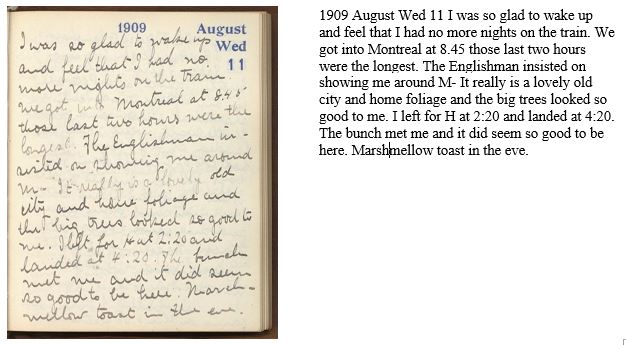 1909 August
Wed
11
I was so glad to wake up
and feel that I had no
more nights on the train.
We got into Montreal at 8.45
those last two hours were the
longest. The Englishman in-
sisted on showing me around
M- It really is a lovely old
city and home foliage and
the big trees looked so good to
me. I left for H at 2:20 and
landed at 4:20. The bunch
met me and it did seem
so good to be here. Marsh-
mellow toast in the eve.
1909 August Wed 11 I was so glad to wake up
and feel that I had no more nights on the train. We
got into Montreal at 8.45 those last two hours
were the longest. The Englishman insisted on
showing me around M- It really is a lovely old
city and home foliage and the big trees looked so
good to me. I left for H at 2:20 and landed at 4:20.
The bunch met me and it did seem so good to be
here. Marshmellow toast in the eve.